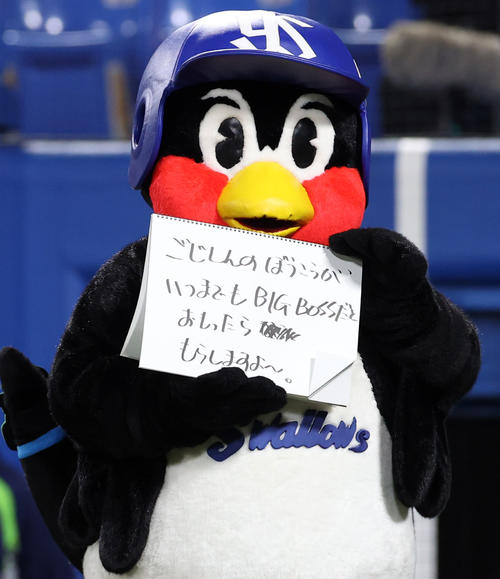 YS
ごじしんの ぼうこうが
いつまでも BIG BOSSだと
おもったら
もらしますよ〜。
Swallows